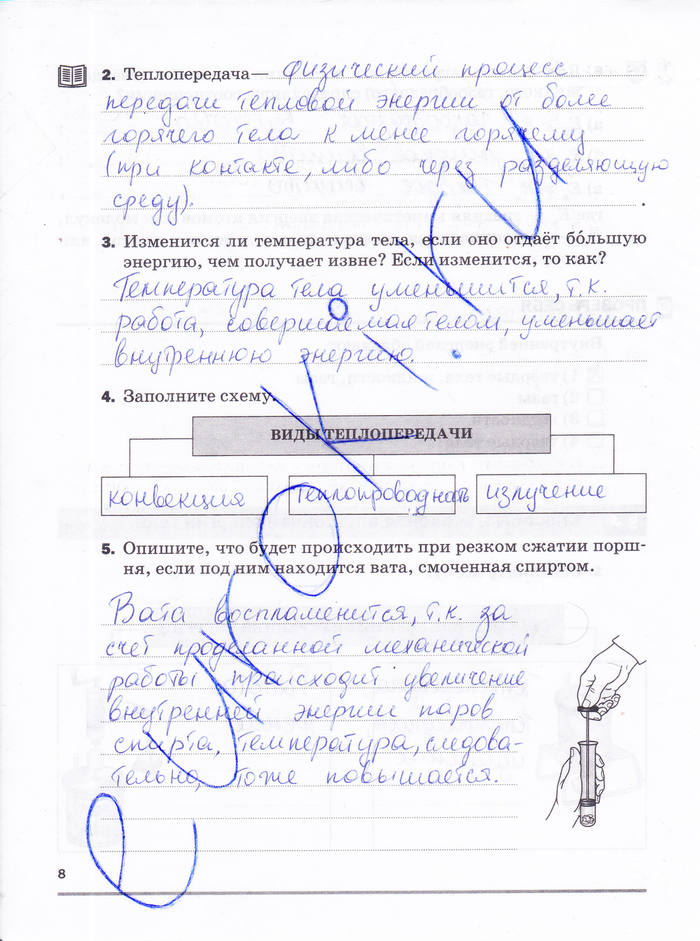 2. Теплопередача— физический процесс
передачи тепловой энергии от более
горячего тела к менее горячему
(при контакте, либо через разделяющую
среду).
3. Изменится ли температура тела, если оно отдаёт бо́льшую
энергию, чем получает извне? Если изменится, то как?
Температура тела уменьшится, т.к.
работа, совершаемая телом, уменьшает
внутреннюю энергию.
4. Заполните схему.
ВИДЫ ТЕПЛОПЕРЕДАЧИ
конвекция теплопроводность излучение
5. Опишите, что будет происходить при резком сжатии порш-
ня, если под ним находится вата, смоченная спиртом.
Вата воспламенится, т.к. за
счет проделанной механической
работы происходит увеличение
внутренней энергии паров
спирта, температура, следова-
тельно, тоже повышается.
8